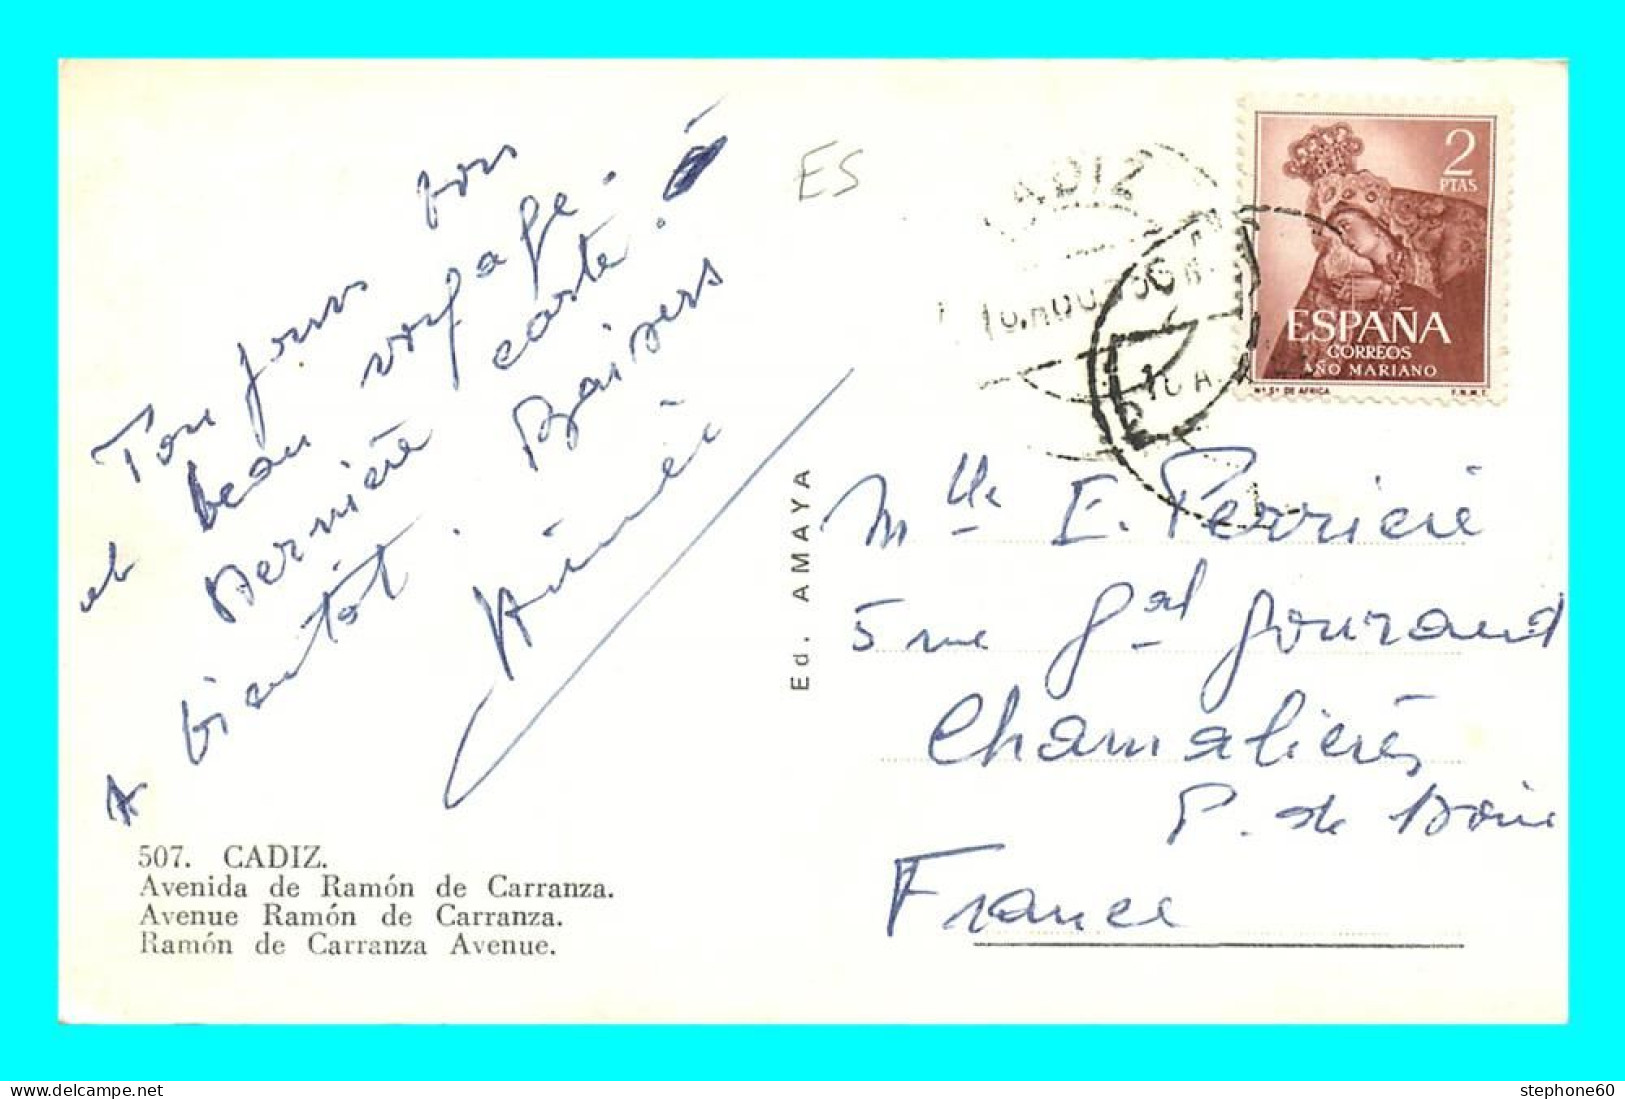 Toujours bon
et beau voyage.
dernière carte.
A bientôt. Baisers
Aimée
507. CADIZ.
Avenida de Ramón de Carranza.
Avenue Ramón de Carranza.
Ramón de Carranza Avenue.
Ed. AMAYA
ES
CADIZ
2
PTAS
ESPAÑA
CORREOS
AÑO MARIANO
Nª Sª DE AFRICA
F.N.M.T.
Mlle E. Perrière
5 rue Gal Gouraud
Chamalières
P. de Dôme
France
stephone60